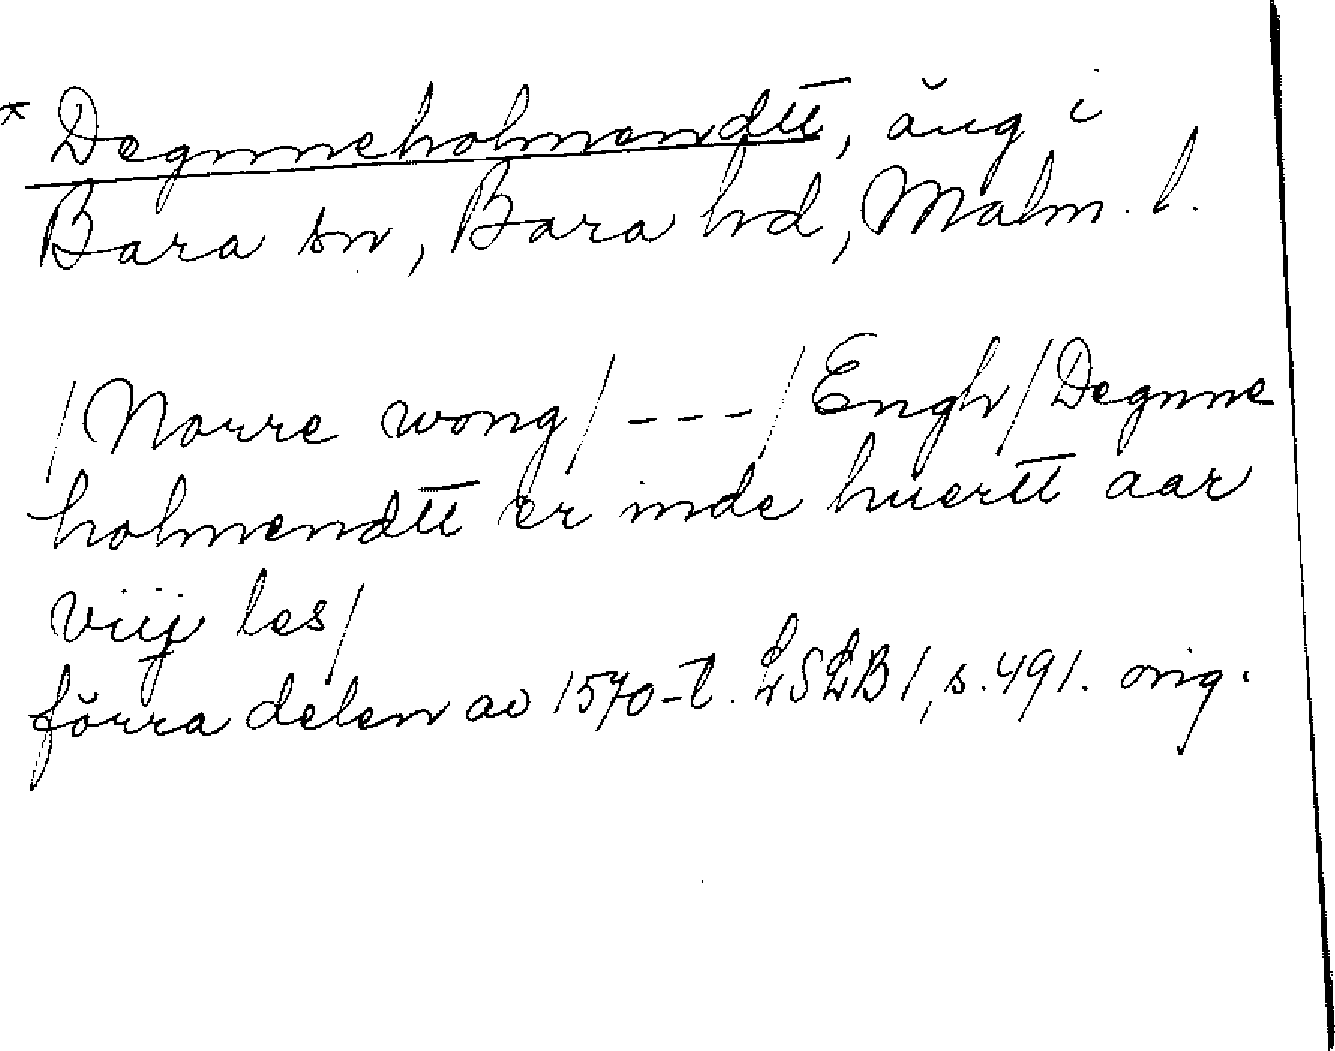 * Degnneholmendtt, äng i
Bara sn, Bara hd, Malm. l.
/Norre wong/ - - - / Engh/Degnne
holmendtt er inde huertt aar
viij les/
förra delen av 1570-t. LSLB 1, s. 491. orig.